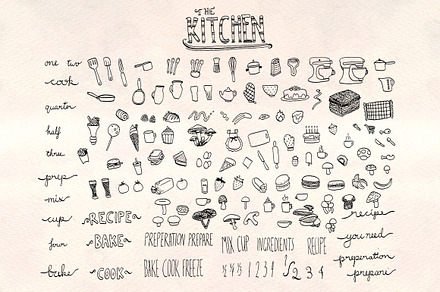 THE
KITCHEN
one two
cook
quarter
half
three
prep
mix
cup
RECIPE
recipe
four
BAKE
PREPARATION PREPARE
MIX CUP
INGREDIENTS
RECIPE
you need
preparation
bake
COOK
BAKE COOK FREEZE
1 2 3 4
1/2 2 3 4
prepare